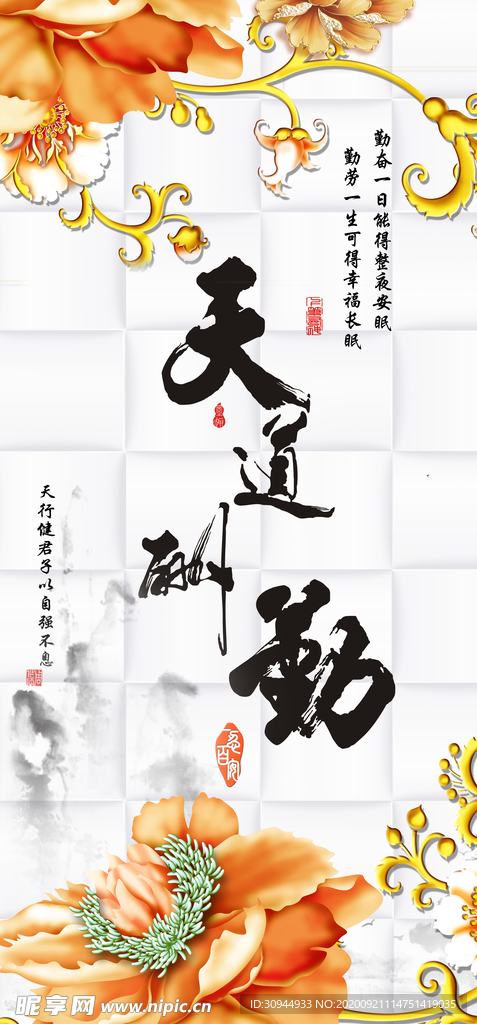 勤奋一日能得整夜安眠
勤劳一生可得幸福长眠
天道酬勤
天行健君子以自强不息
昵享网 www.nipic.cn
ID:30944933 NO:20200921114751419035